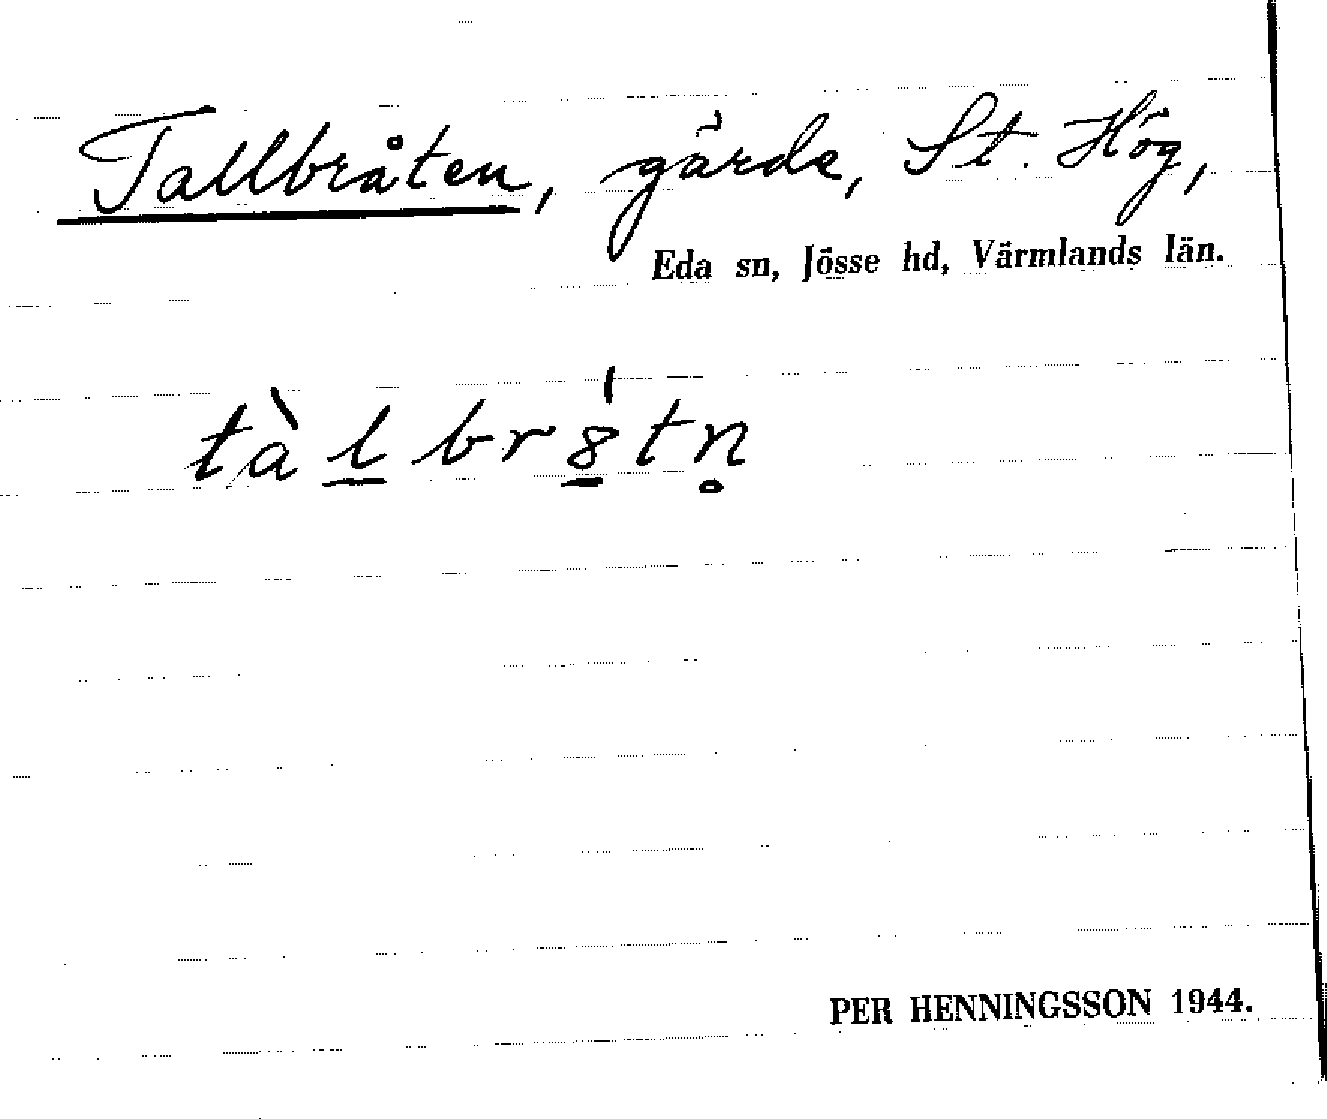 Tallbråten, gärde, St. Hög,
Eda sn, Jösse hd, Värmlands län.
tàl̲br8̲́tn̥
PER HENNINGSSON 1944.